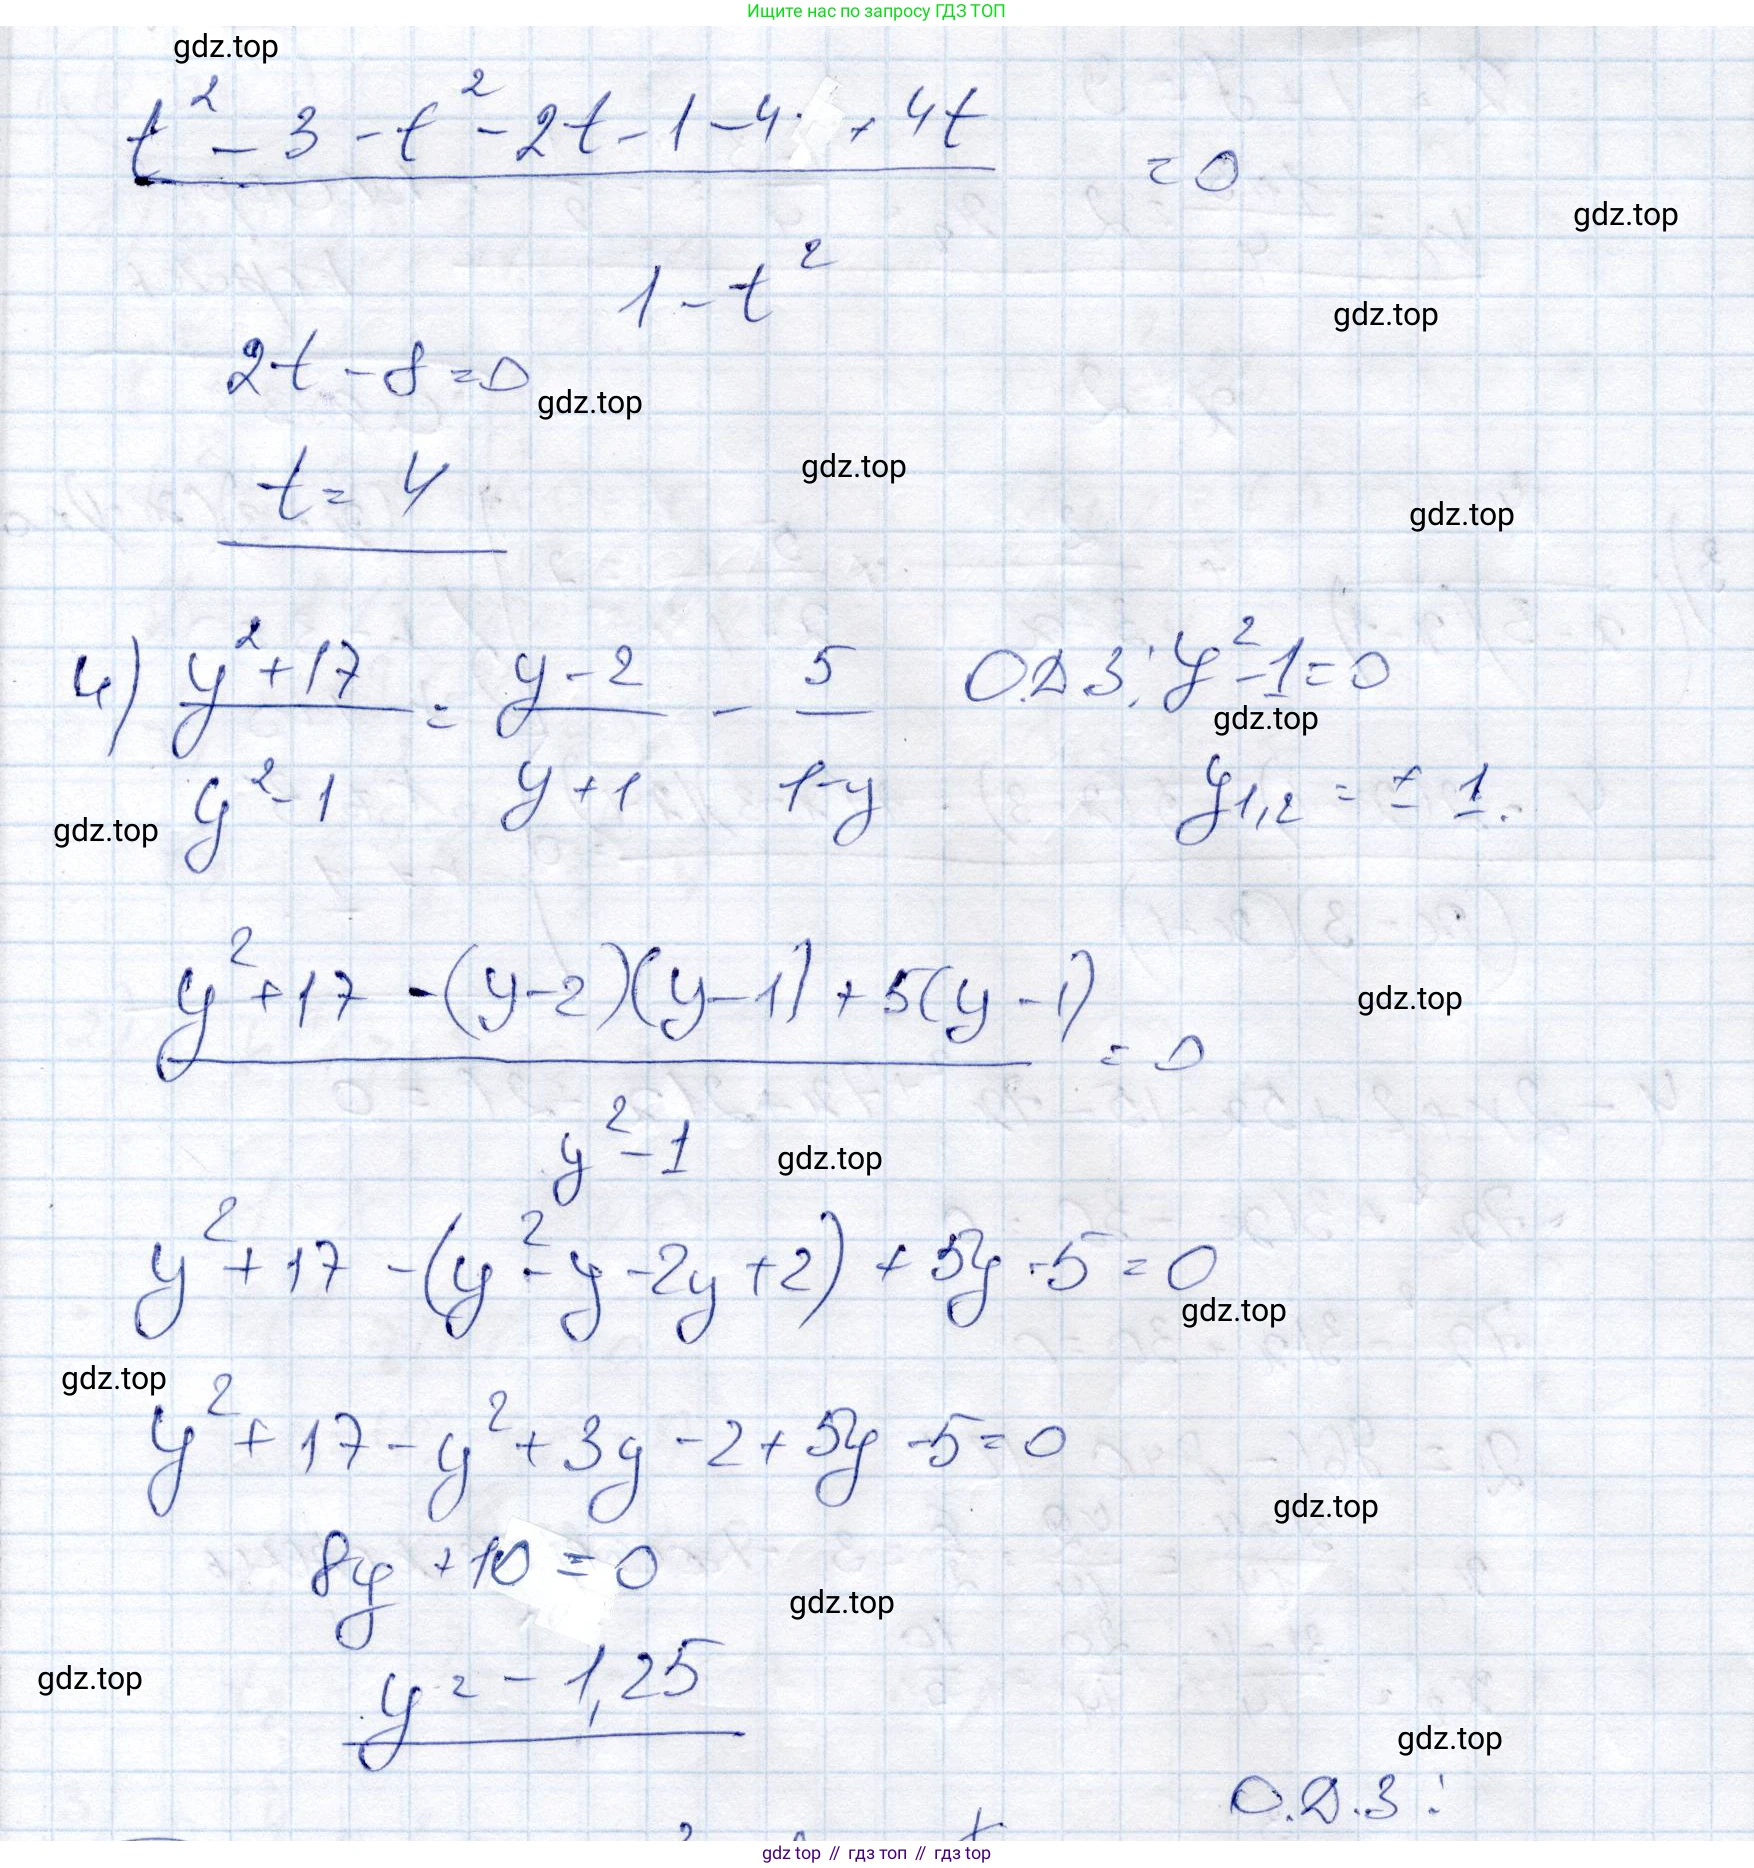 Ищите нас по запросу ГДЗ ТОП
gdz.top
t² - 3 - t² - 2t - 1 - 4 + 4t
= 0
gdz.top
1 - t²
gdz.top
2t - 8 = 0
gdz.top
gdz.top
t = 4
gdz.top
4) (y² + 17)/(y² - 1) = (y - 2)/(y + 1) - 5/(1 - y) О.Д.З: y² - 1 = 0
gdz.top
y₁,₂ = ± 1.
gdz.top
(y² + 17 - (y - 2)(y - 1) + 5(y - 1))/(y² - 1) = 0
gdz.top
gdz.top
y² + 17 - (y² - y - 2y + 2) + 5y - 5 = 0
gdz.top
gdz.top
y² + 17 - y² + 3y - 2 + 5y - 5 = 0
gdz.top
8y + 10 = 0
gdz.top
gdz.top
y = - 1,25
gdz.top
О.Д.З:
gdz top // гдз топ // гдз top